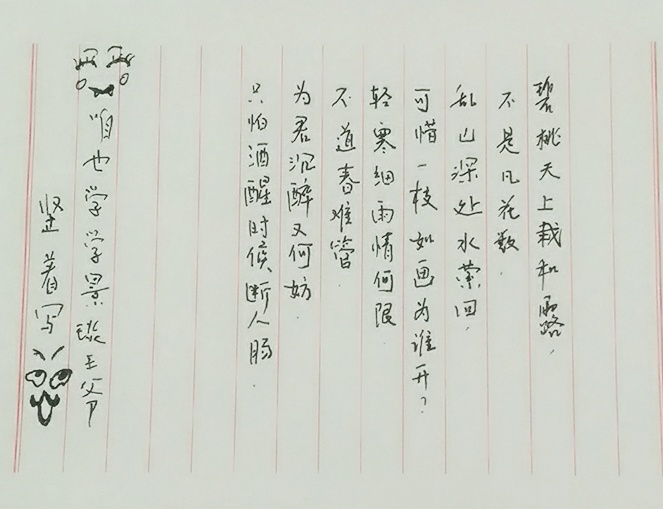 碧桃天上栽和露，
不是凡花数．
乱山深处水萦回，
可惜一枝如画为谁开？
轻寒细雨情何限．
不道春难管．
为君沉醉又何妨
只怕酒醒时候断人肠．
咱也学学景琰王爷
竖着写